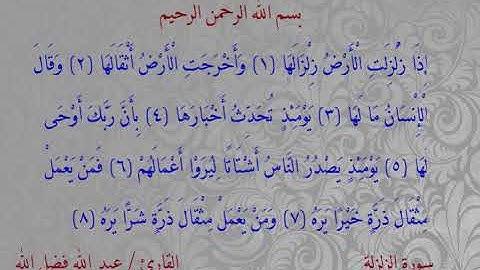 بسم الله الرحمن الرحيم
إِذَا زُلْزِلَتِ الْأَرْضُ زِلْزَالَهَا (١) وَأَخْرَجَتِ الْأَرْضُ أَثْقَالَهَا (٢) وَقَالَ
الْإِنْسَانُ مَا لَهَا (٣) يَوْمَئِذٍ تُحَدِّثُ أَخْبَارَهَا (٤) بِأَنَّ رَبَّكَ أَوْحَى
لَهَا (٥) يَوْمَئِذٍ يَصْدُرُ النَّاسُ أَشْتَاتًا لِيُرَوْا أَعْمَالَهُمْ (٦) فَمَنْ يَعْمَلْ
مِثْقَالَ ذَرَّةٍ خَيْرًا يَرَهُ (٧) وَمَنْ يَعْمَلْ مِثْقَالَ ذَرَّةٍ شَرًّا يَرَهُ (٨)
سورة الزلزلة القارئ/ عبد الله فضل الله